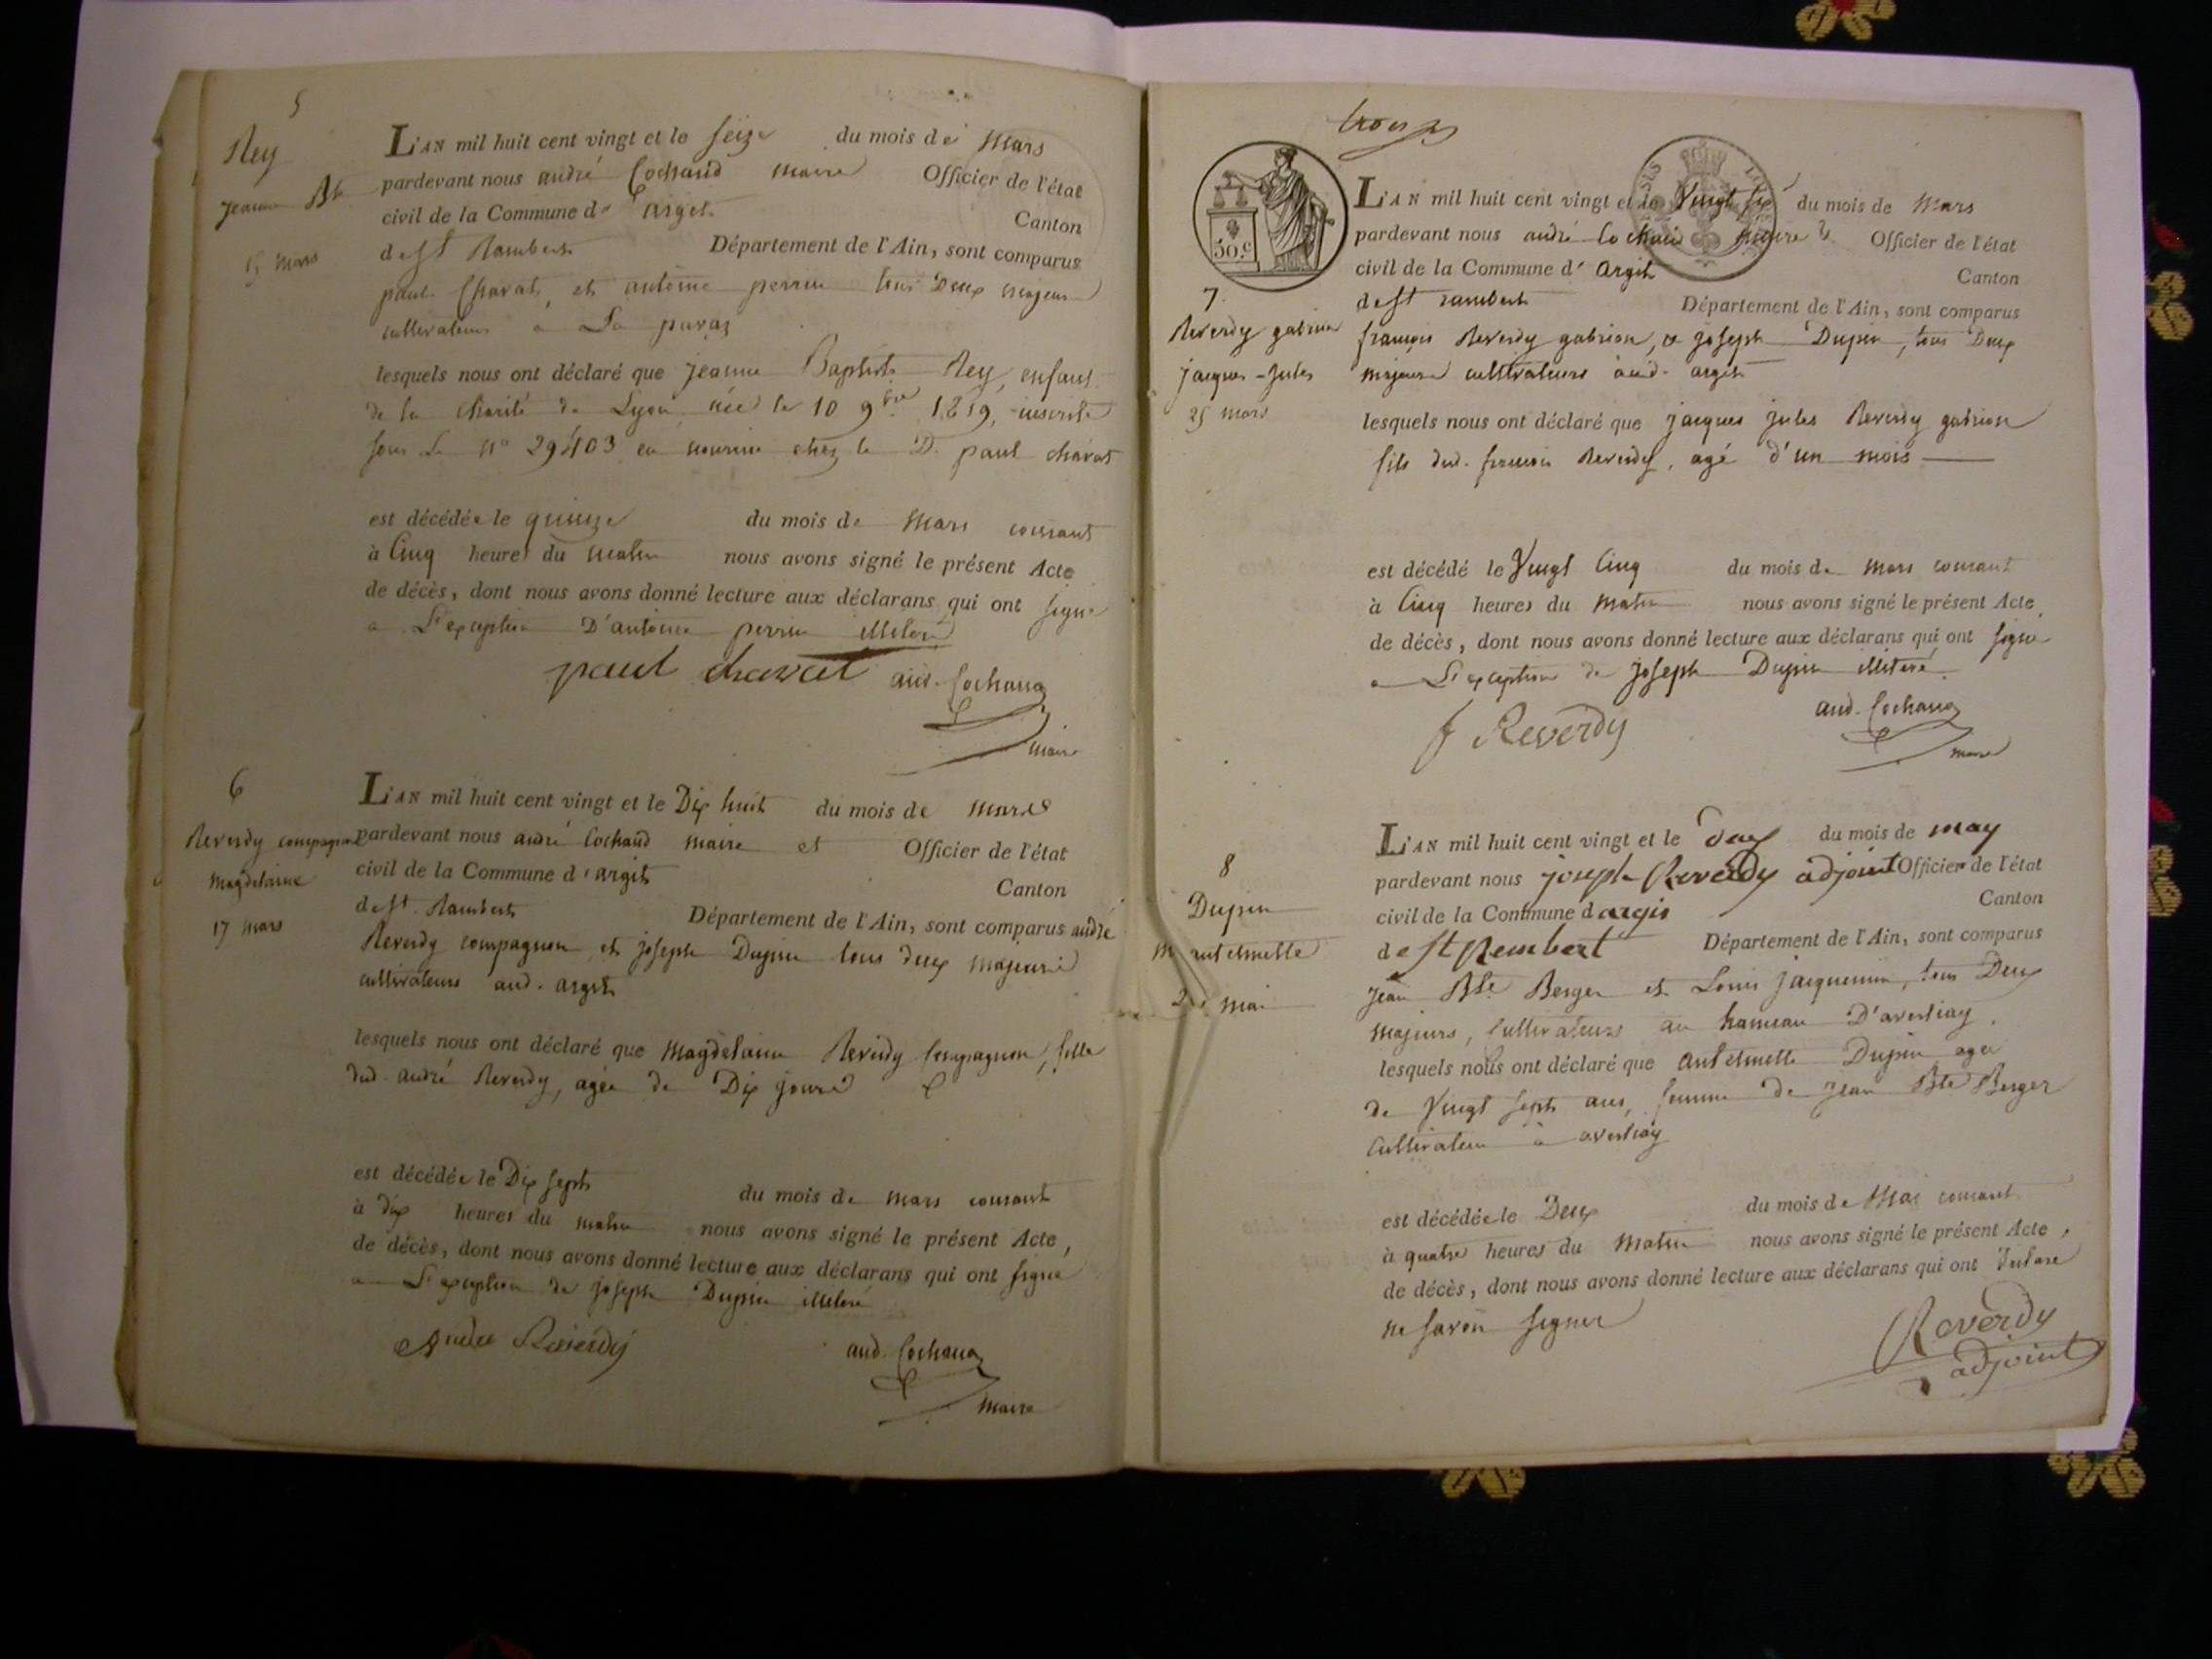 5
Rey
jeanne Bte
15 mars
L'AN mil huit cent vingt et le seize du mois de Mars
pardevant nous andré Cochaud maire Officier de l'état
civil de la Commune d' argit Canton
de St Rambert Département de l'Ain, sont comparus
paul Charat, et antoine perrin tous Deux majeurs
cultivateurs a La
lesquels nous ont déclaré que jeanne Baptiste Rey, enfant
de la charité de Lyon, née le 10 9bre 1819, inscrite
sous le No 29403 en nourrice chez le D. paul charat
est décédée le quinze du mois de Mars courant
à Cinq heures du matin nous avons signé le présent Acte
de décès, dont nous avons donné lecture aux déclarans qui ont signé
a L'exception D'antoine perrin illiteré
paul charat and. Cochaud
maire
6
Reverdy compagnon
Magdelaine
17 mars
L'AN mil huit cent vingt et le Dix huit du mois de mars
pardevant nous andré Cochaud maire et Officier de l'état
civil de la Commune d'argit Canton
de St. Rambert Département de l'Ain, sont comparus andré
Reverdy compagnon et joseph Dupin tous deux majeurs
cultivateurs aud. argit
lesquels nous ont déclaré que Magdelaine Reverdy Compagnon, fille
dud. andré Reverdy, agée de Dix jours
est décédée le Dix sept du mois de mars courant
à dix heures du matin nous avons signé le présent Acte,
de décès, dont nous avons donné lecture aux déclarans qui ont signé
a L'exception de joseph Dupin illiteré
Andre Reverdy and. Cochaud
Maire
trois
50.c
7.
Reverdy gabrion
jacques-jules
25 mars
L'AN mil huit cent vingt et le Vingt six du mois de Mars
pardevant nous andré Cochaud maire Officier de l'état
civil de la Commune d' argit Canton
de St rambert Département de l'Ain, sont comparus
françois Reverdy gabrion, & joseph Dupin, tous Deux
majeurs cultivateurs aud. argit
lesquels nous ont déclaré que jacques jules Reverdy gabrion
fils dud. francois Reverdy, agé d'un mois
est décédé le Vingt Cinq du mois de mars courant
à Cinq heures du matin nous avons signé le présent Acte,
de décès, dont nous avons donné lecture aux déclarans qui ont signé
a L'exception de joseph Dupin illiteré
f Reverdy and. Cochaud
maire
8
Dupin
antelmette
2 mai
L'AN mil huit cent vingt et le du mois de may
pardevant nous joseph Reverdy adjoint Officier de l'état
civil de la Commune d argis Canton
de St Rembert Département de l'Ain, sont comparus
jean Bte Berger et Louis jacquemin, tous Deux
majeurs, Cultivateurs au hameau D'averliay.
lesquels nous ont déclaré que antelmette Dupin agee
de Vingt sept ans, femme de jean Bte Berger
Cultivateur à averliay
est décédée le Deux du mois de Mai courant
à quatre heures du matin nous avons signé le présent Acte,
de décès, dont nous avons donné lecture aux déclarans qui ont
ne savoir signer
Reverdy
adjoint